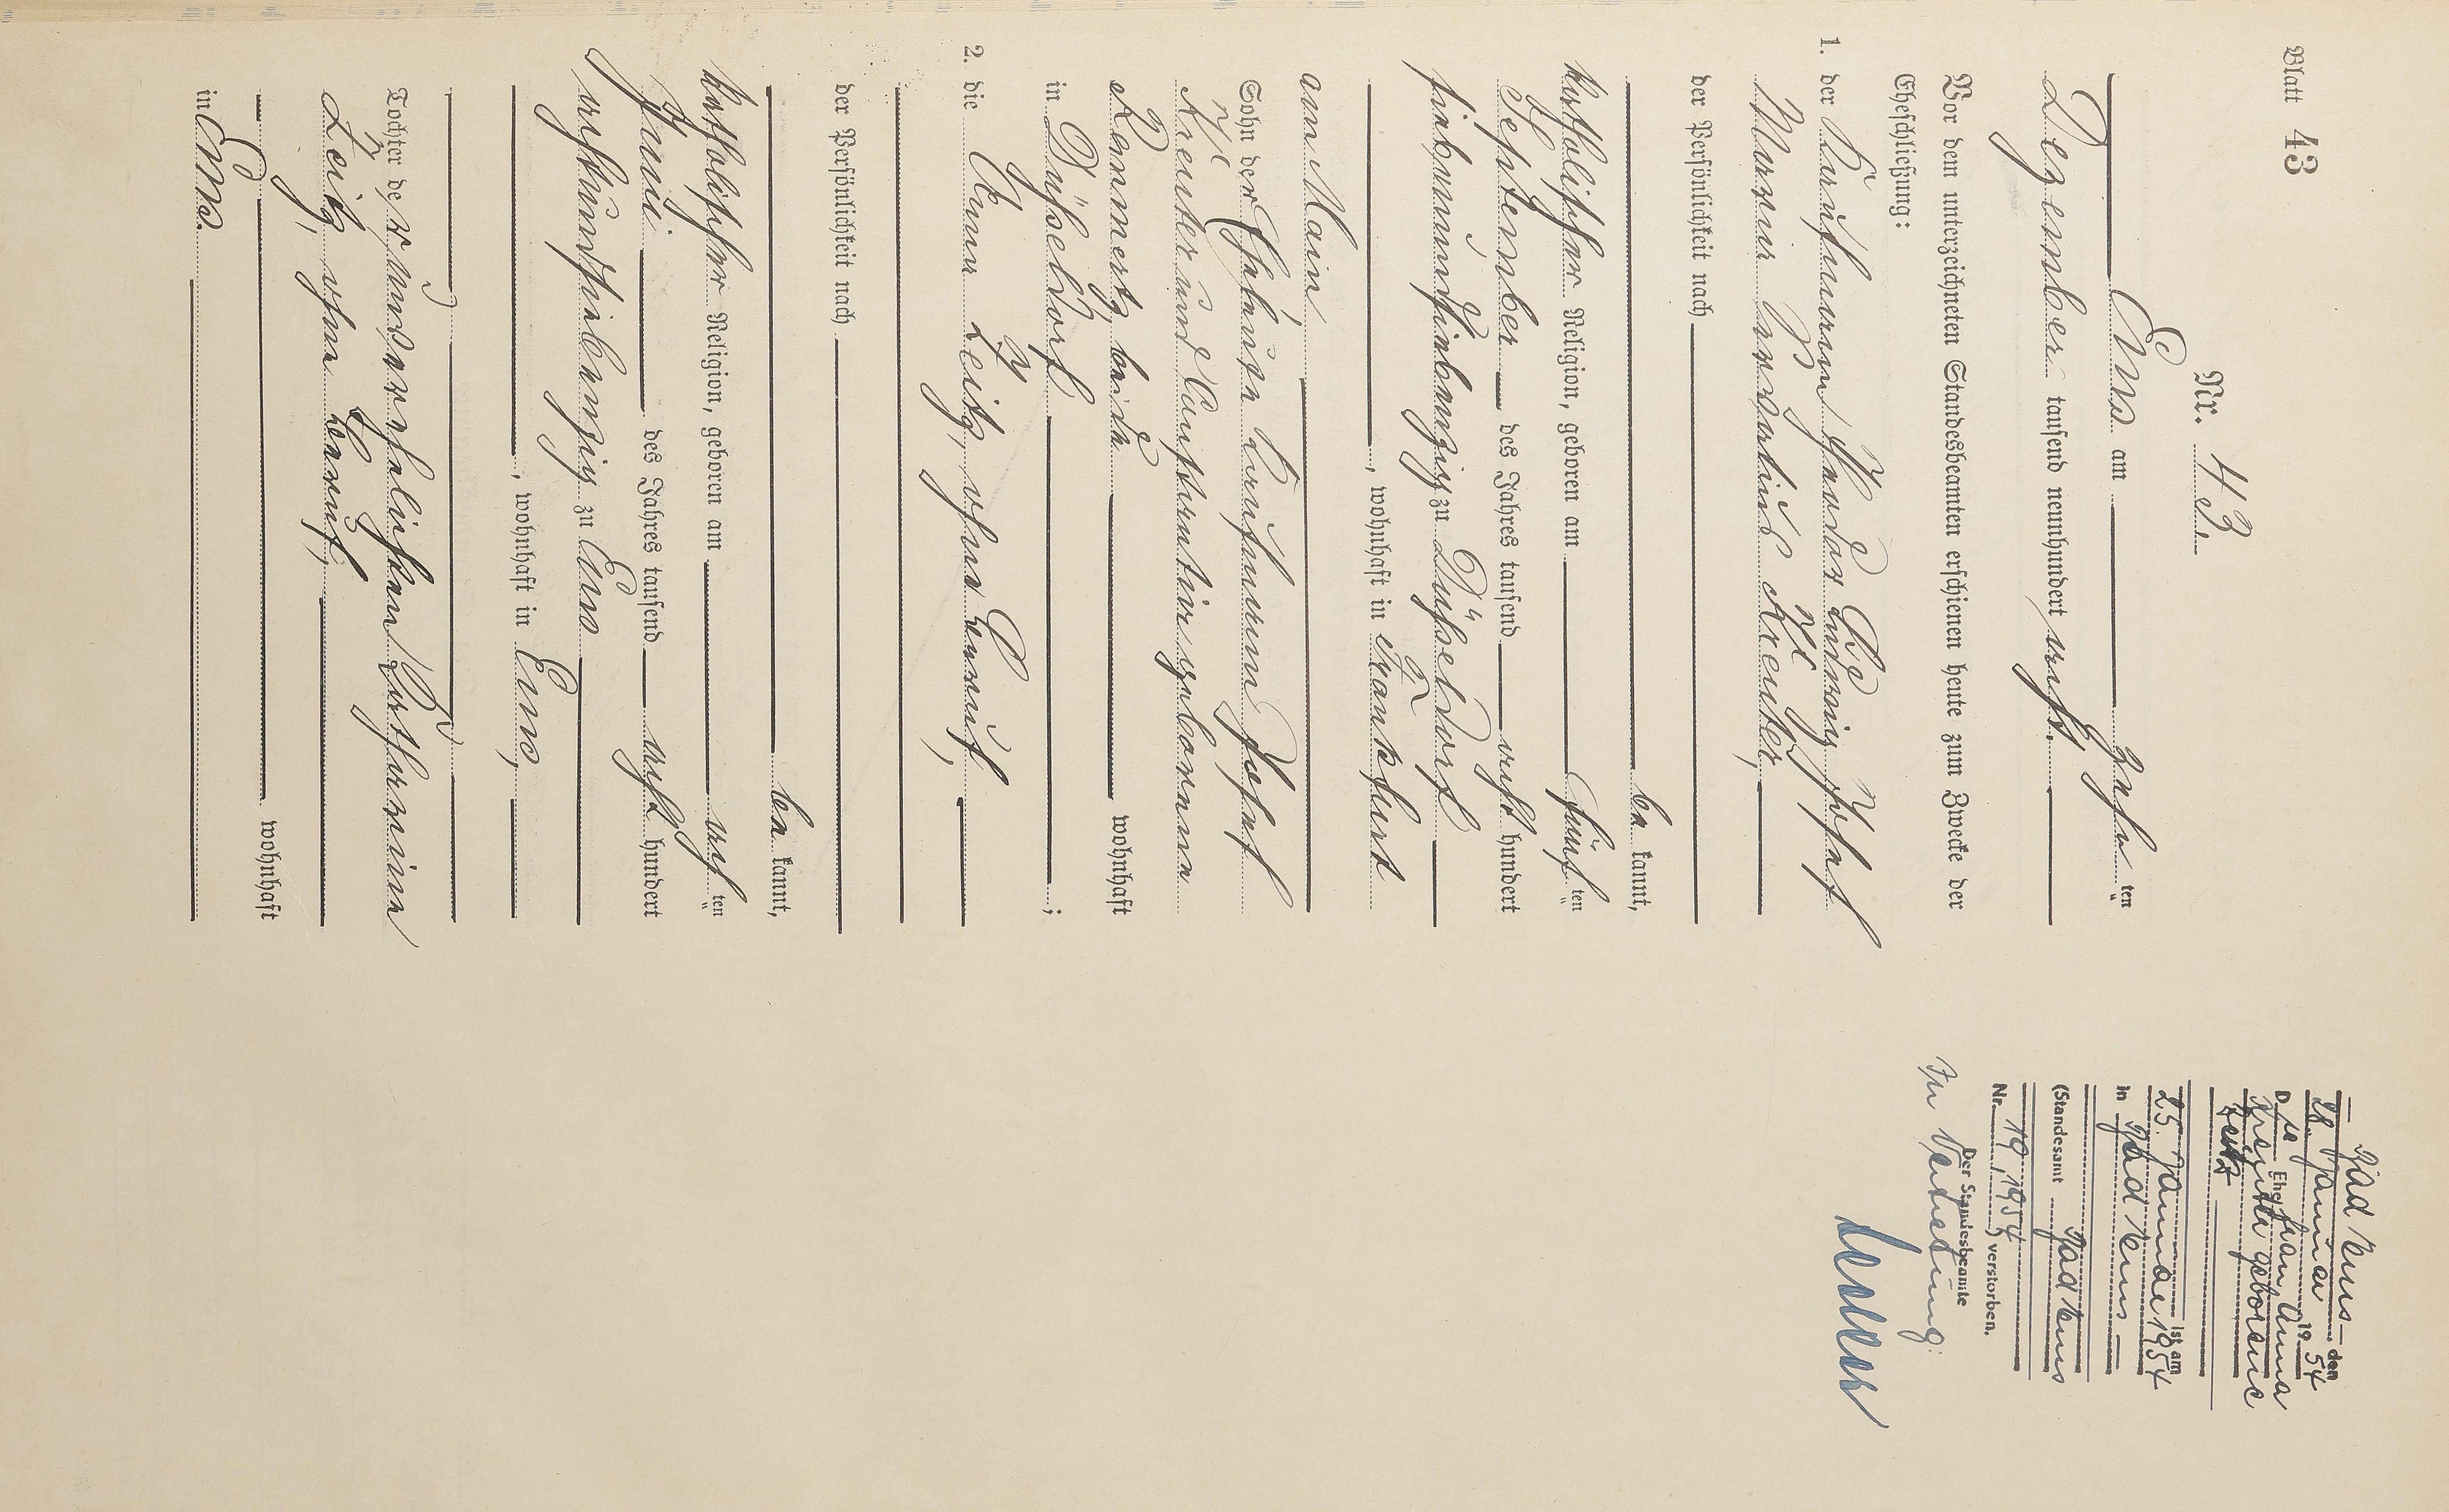 Blatt 43
Nr. 43.
Ems am zehn ten
Dezember tausend neunhundert acht.
Vor dem unterzeichneten Standesbeamten erschienen heute zum Zwecke der
Eheschließung:
1. der Kaufmann Ludwig Josef
Maria Kreuter,
der Persönlichkeit nach
be kannt,
katholischer Religion, geboren am fünf ten
September des Jahres tausend acht hundert
siebenundsiebenzig zu Düsseldorf
, wohnhaft in Frankfurt
am Main,
Sohn der Eheleute Kaufmann Josef
Kreuter und geborenen
Rennertz, beide wohnhaft
in Düsseldorf ;
2. die Anna Leitz, ohne Beruf,
der Persönlichkeit nach
be kannt,
katholischer Religion, geboren am acht ten
Juni des Jahres tausend acht hundert
achtundsiebenzig zu Ems
, wohnhaft in Ems,
Tochter der unverehelichten Katharina
Leitz, ohne Beruf,
wohnhaft
in Ems.
Bad Ems den
28. Januar 19 54
Die Ehefrau Anna
Kreuter geborene
Leitz
ist am
25. Januar 1954
in Bad Ems
(Standesamt Bad Ems
Nr. 19/1954) verstorben.
Der Standesbeamte
In Vertretung: